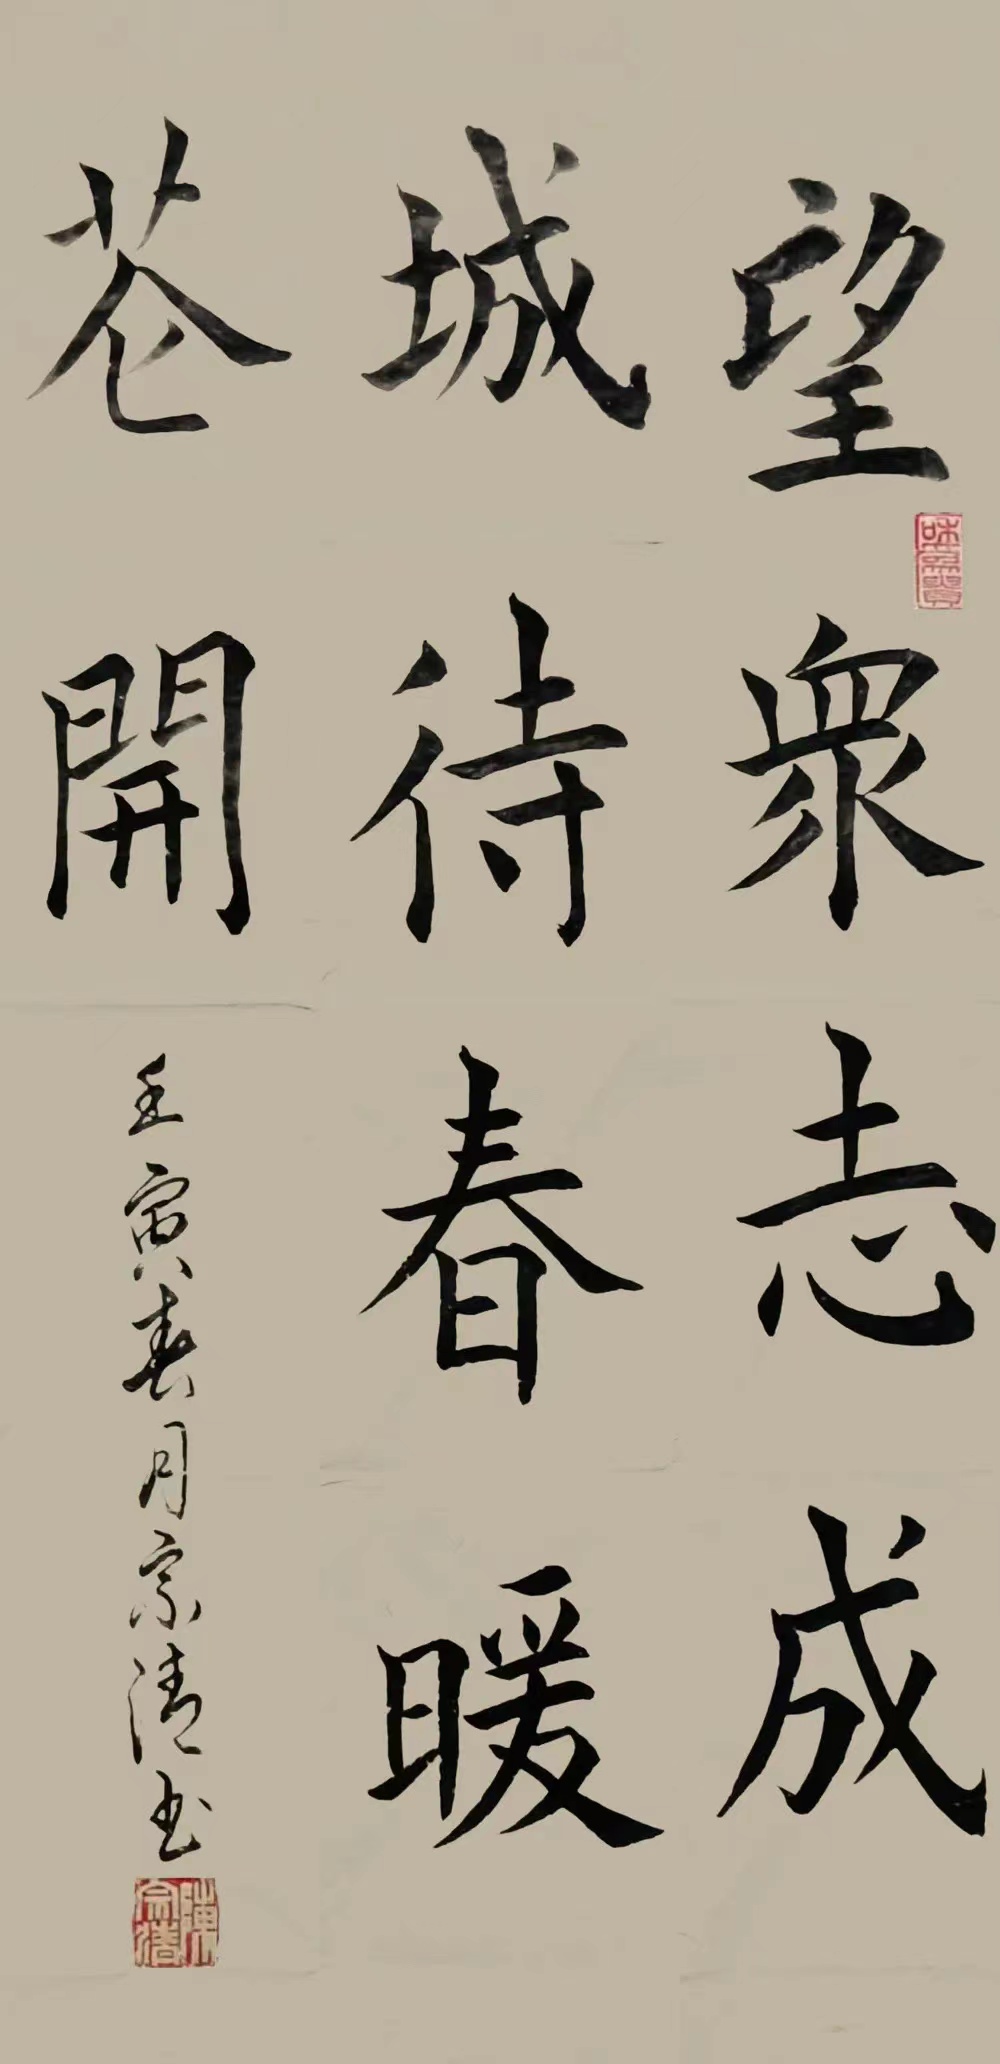 望衆志成
城待春暖
花開
壬寅春月宗清书
陳宗清